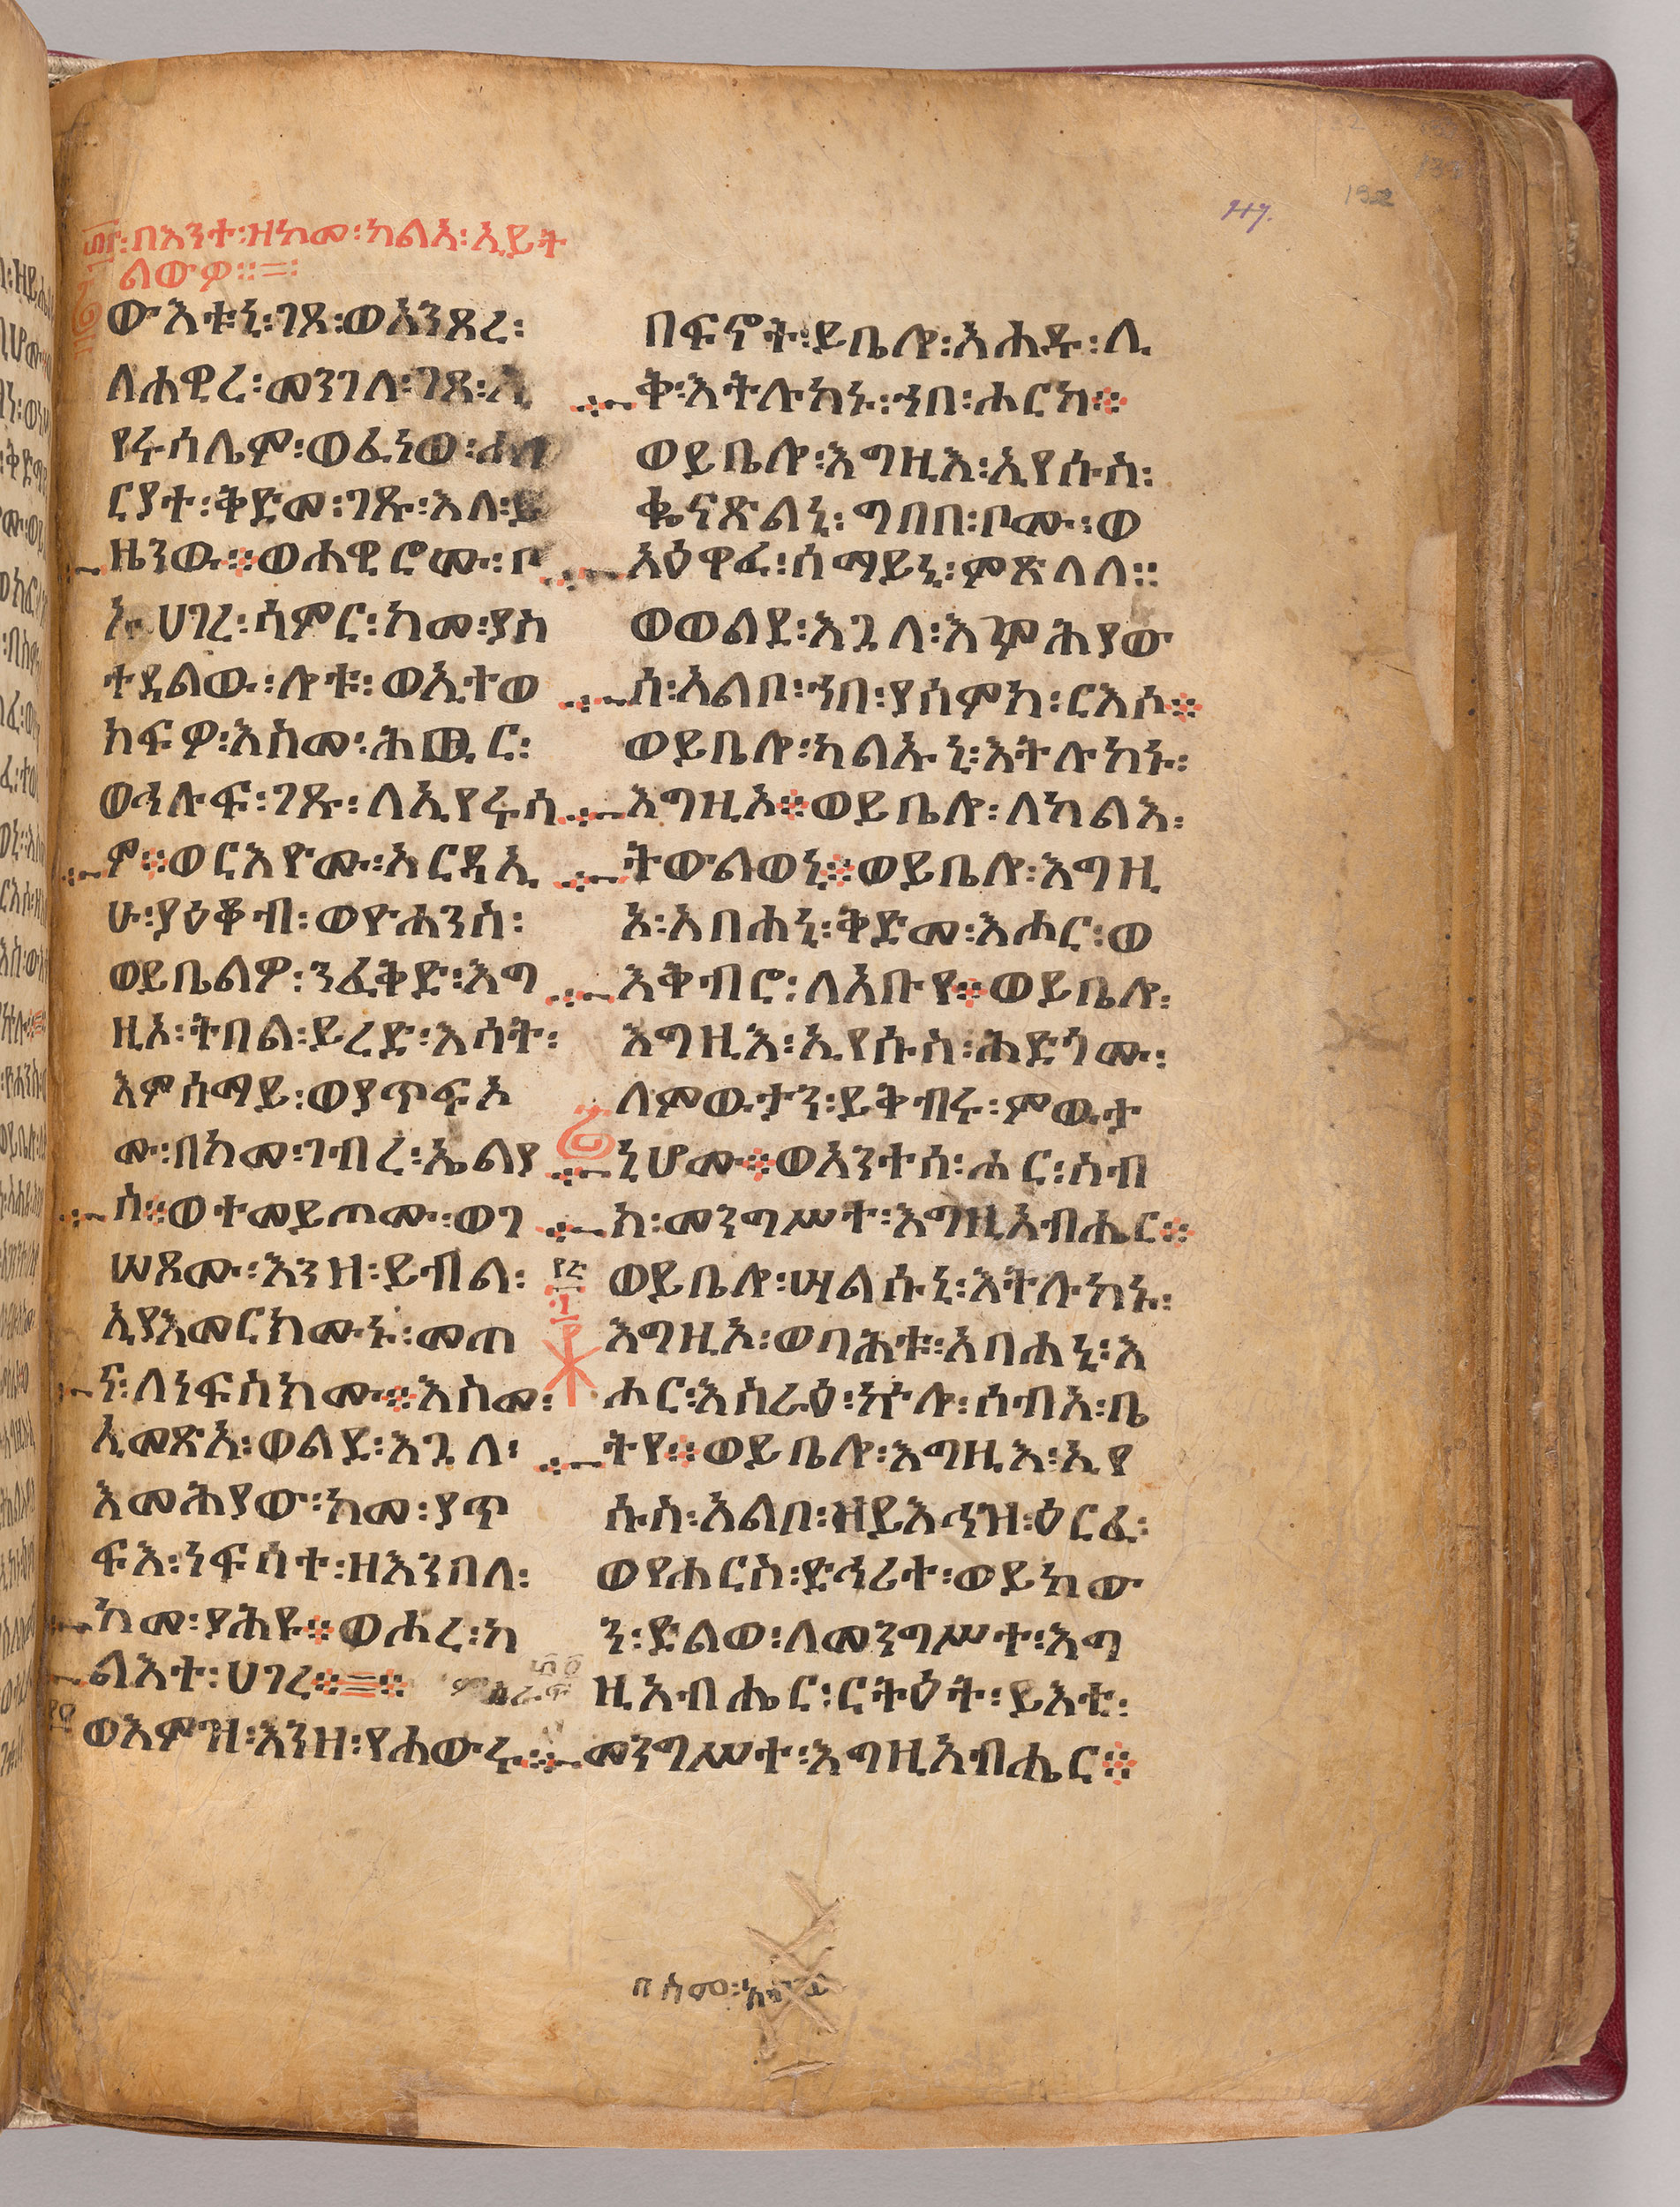 በእንተ፡ዝከመ፡ካልእ፡ኢይት
ልውዎ፡፡=፡
ውእቱኒ፡ገጸ፡ወአንጸረ፡
ለሐዊረ፡መንገለ፡ገጸ፡ኢ
የሩሳሌም፡ወፈነወ፡ሐዋ
ርያተ፡ቅድመ፡ገጹ፡እለ፡ይ
ዜንዉ።ወሐዊሮሙ፡ቦ
ኡ፡ሀገረ፡ሳምር፡ከመ፡ያስ
ተዴልዉ፡ሎቱ፡ወኢተወ
ክፍዎ፡እስመ፡ሕዉር፡
ወኀሉፍ፡ገጹ፡ለኢየሩሳ
ም።ወርእዮሙ፡አርዳኢ
ሁ፡ያዕቆብ፡ወዮሐንስ፡
ወይቤልዎ፡ንፈቅድ፡እግ
ዚኦ፡ትበል፡ይረድ፡እሳት፡
እምሰማይ፡ወያጥፍኦ
ሙ፡በከመ፡ገብረ፡ኤልያ
ስ።ወተመይጦሙ፡ወገ
ሠጾሙ፡እንዘ፡ይብል፡
ኢያእመርክሙኑ፡መጠ
ነ፡ለነፍስክሙ።እስመ፡
ኢመጽአ፡ወልደ፡እጓለ፡
እመሕያው፡ከመ፡ያጥ
ፍእ፡ነፍሳተ፡ዘእንበለ፡
ከመ፡ያሕዩ።ወሐረ፡ካ
ልእተ፡ሀገረ።=።
ወእምዝ፡እንዘ፡የሐውሩ።
በፍኖት፡ይቤሎ፡አሐዱ፡ሊ
ቅ፡እትሉካኑ፡ኀበ፡ሖርከ።
ወይቤሎ፡እግዚእ፡ኢየሱስ፡
ቈናጽልኒ፡ግበበ፡ቦሙ፡ወ
አዕዋፈ፡ሰማይኒ፡ምጽላለ፡፡
ወወልደ፡እጓለ፡እምሕያው
ሰ፡አልቦ፡ኀበ፡ያሰምክ፡ርእሶ።
ወይቤሎ፡ካልኡኒ፡እትሉከኑ፡
እግዚኦ።ወይቤሎ፡ለካልእ፡
ትውልወኒ።ወይቤሎ፡እግዚ
ኦ፡አበሐኒ፡ቅድመ፡እሖር፡ወ
እቅብሮ፡ለአቡየ።ወይቤሎ፡
እግዚእ፡ኢየሱስ፡ሕድጎሙ፡
ለምዉታን፡ይቅብሩ፡ምዉታ
ኒሆሙ።ወአንተሰ፡ሐር፡ስብ
ከ፡መንግሥተ፡እግዚአብሔር።
ወይቤሎ፡ሣልሱኒ፡እትሉከኑ፡
እግዚኦ፡ወባሕቱ፡አበሐኒ፡እ
ሖር፡እስራዕ፡ኵሎ፡ሰብአ፡ቤ
ትየ።ወይቤሎ፡እግዚእ፡ኢየ
ሱስ፡አልቦ፡ዘይእኅዝ፡ዕርፈ፡
ወየሐርስ፡ድኅሪተ፡ወይከው
ን፡ድልወ፡ለመንግሥተ፡እግ
ዚአብሔር፡ርትዕት፡ይእቲ፡
መንግሥተ፡እግዚአብሔር።
በስመ፡